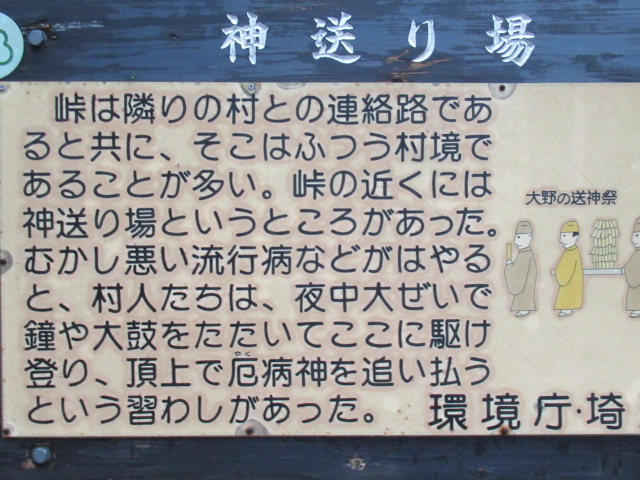 神送り場
峠は隣りの村との連絡路であ
ると共に、そこはふつう村境で
あることが多い。峠の近くには
神送り場というところがあった。
むかし悪い流行病などがはやる
と、村人たちは、夜中大ぜいで
鐘や大鼓をたたいてここに駆け
登り、頂上で厄病神を追い払う
という習わしがあった。
やく
大野の送神祭
環境庁·埼